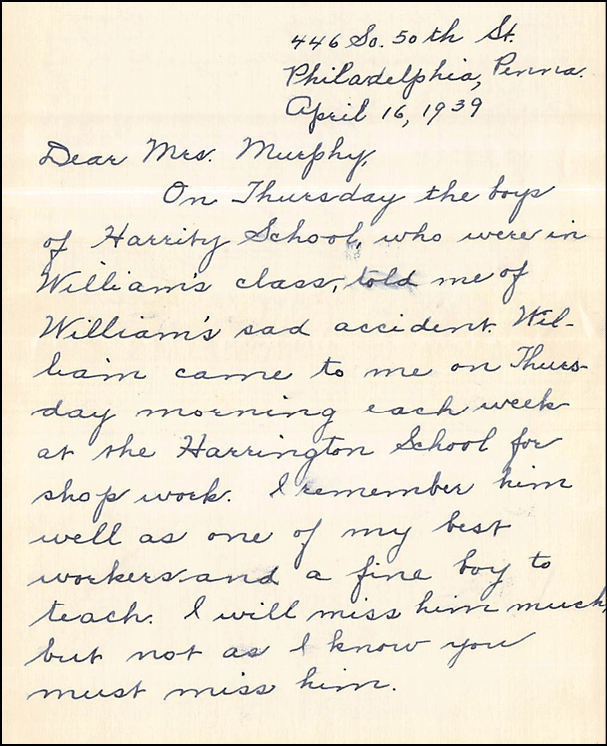 446 So. 50th St.
Philadelphia, Penna.
April 16, 1939
Dear Mrs. Murphy,
On Thursday the boys
of Harrity School, who were in
William's class, told me of
William's sad accident. Wil-
liam came to me on Thurs-
day morning each week
at the Harrington School for
shop work. I remember him
well as one of my best
workers and a fine boy to
teach. I will miss him much,
but not as I know you
must miss him.